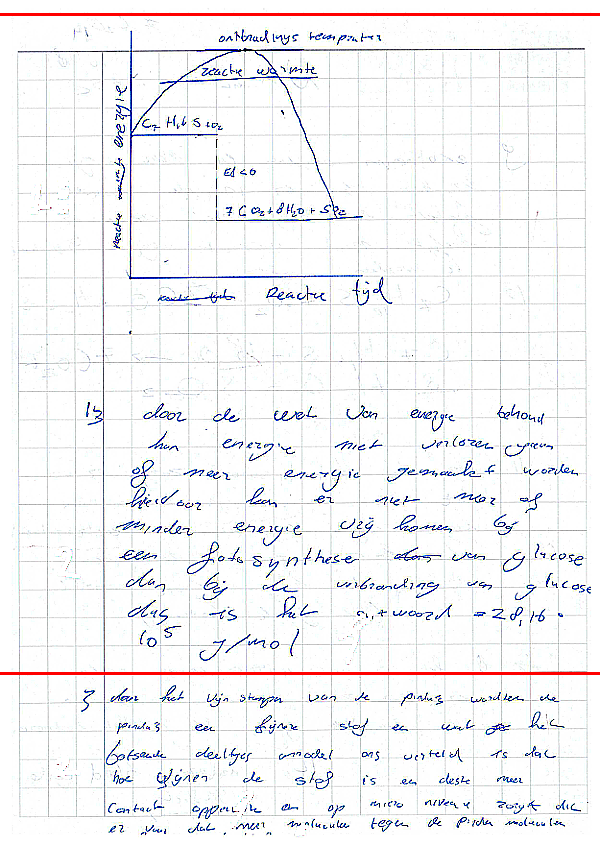 ontbradings temprater
reactie warmte
reactie energie
C7 H16 S O2
E1 <0
7 CO2 + 8H2O + SO2
Reactie tijd
13 door de wet van energie behoud
kan energie niet verloren gaan
of meer energie gemaakt worden
hierdoor kan er niet meer of
minder energie vrij komen bij
een fotosynthese van glucose
dan bij de verbranding van glucose
dus is het antwoord = 28,16 ·
10^5 J/mol
3 door het fijn stampen van de pinda's worden de
pinda's een fijnere stof en wat het
botsende deeltjes model ons verteld is dat
hoe fijner de stof is en deste meer
contact oppervlak en op micro niveau zorgt dit
er voor dat meer moleculen tegen de pinda moleculen